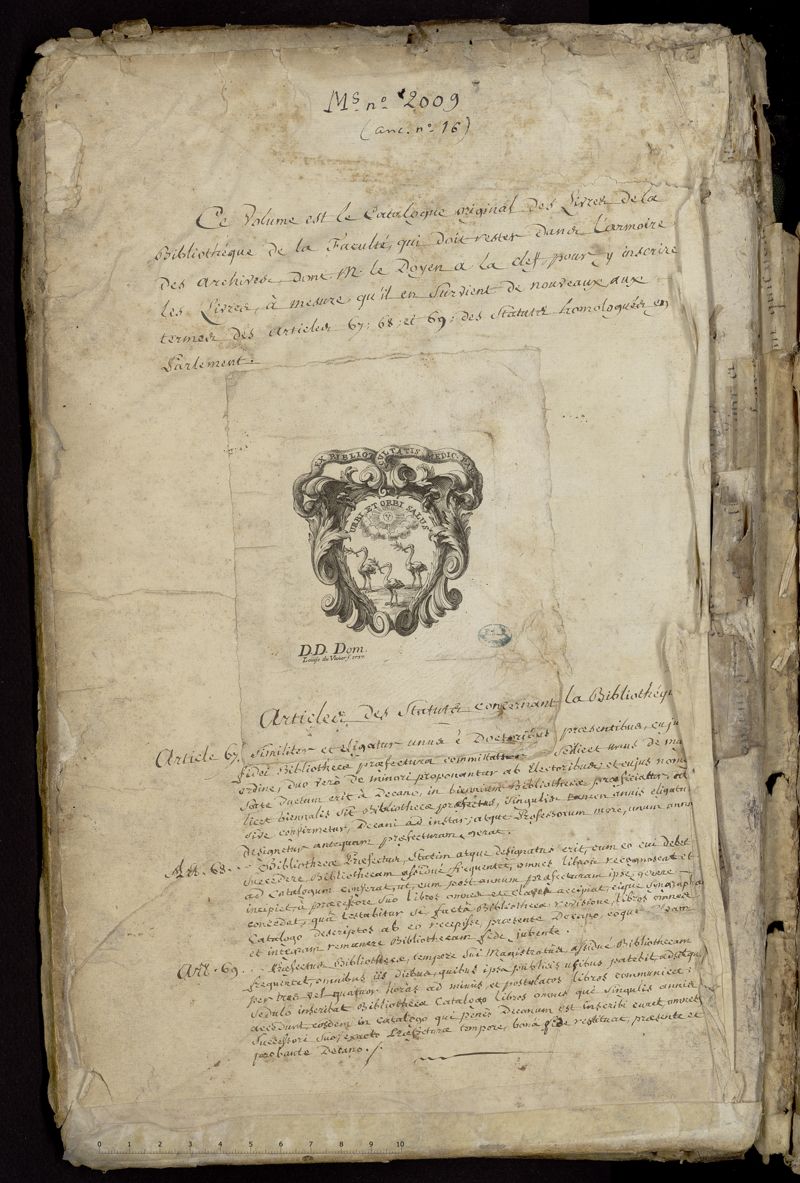 Ms. no. 2009
(anc. no. 16)
Ce Volume est le Catalogue original des Livres de la
Bibliothéque de la Faculté, qui doit rester dans L'armoire
des Archives, dont Mr. le Doyen a la clef, pour y inscrire
les Livres, à mesure qu'il en Survient de nouveaux aux
termes des Articles 67; 68; et 69; des Statuts homologués en
Parlement.
EX BIBLIOT CULTATIS MEDIC. PAR
URBI ET ORBI SALUS
D.D. Dom.
Articles des Statuts concernant la Bibliothéq
Article 67. Similiter et eligatur unus è Doctoribus praesentibus, cuju
fidei Bibliothecae praefectura committatur. Scilicet unus de ma
ordine, duo verò de minori proponantur ab Electoribus et cujus nome
Sorte ductum erit à Decano, in biennium Bibliothecae praeficiatur, at
licet biennalis sit Bibliothecae praefectus, Singulis tamen annis eligatu
sive confirmetur, Decani ad instar; atque Professorum more, unum anno
designetur antequam praefecturam gerat.
Art. 68. Bibliothecae Praefectus, Statim atque designatus erit, cum eo cui debet
Succedere, Bibliothecam assiduè frequentet, omnes libros recognoscat et
ad Catalogum conferat, ut, cum post annum praefecturam ipse gerere
incipiet, à praecessore suo libros omnes et claves accipiat, eique Syngrapham
concedat, quâ testabitur se factâ Bibliothecae revisione, libros omnes
Catalogo descriptos ab eo recepisse praesente Decano, eoque
et integram remanere Bibliothecam fide jubente.
Art. 69. Praefectus Bibliothecae, tempore sui Magistratûs assiduè Bibliothecam
frequentet, omnibus iis diebus, quibus ipsa publicis usibus patebit, adsitque
per tres vel quatuor horas ad minus, et postulatos libros communicet;
Sedulo inscribat Bibliothecae Catalogo libros omnes qui Singulis annis
accedunt, eosdem in Catalogo qui penès Decanum est inscribi curet, omnes
Successori suo, exacto Praefecturae tempore, bonâ fide restituat, praesente et
probante Decano.
0 1 2 3 4 5 6 7 8 9 10